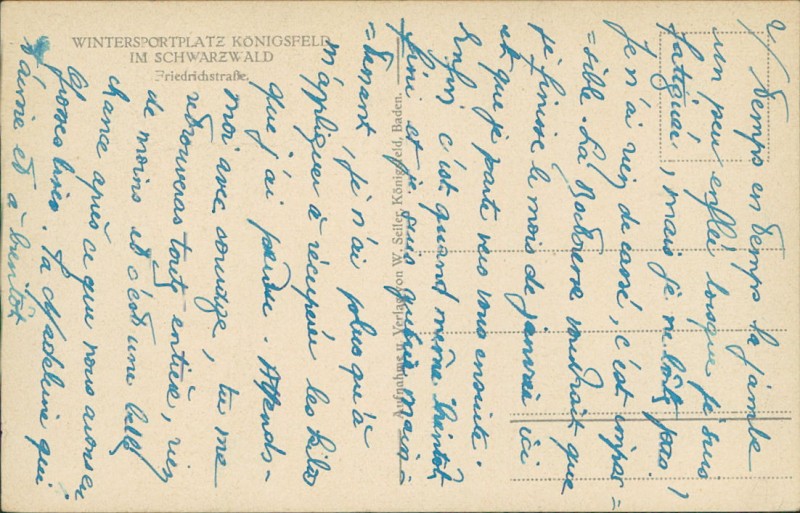 WINTERSPORTPLATZ KÖNIGSFELD
IM SCHWARZWALD
Friedrichstraße.
Aufnahme u. Verlag von W. Seiler, Königsfeld, Baden.
2/ temps en temps la jambe
un peu enflée lorsque je suis
fatiguée, mais je ne boîte pas,
je n'ai rien de cassé, c'est impos=
=sible. La Doctoresse voudrait que
je finisse le mois de janvier ici
et que je parte vers vous ensuite.
Enfin c'est quand même bientôt
fini et je suis guérie main=
=tenant, je n'ai plus qu'à
m'appliquer à récupérer les kilos
que j'ai perdus. Attends-
moi avec courage, tu me
retrouveras toute entière, rien
de moins et c'est une belle
chance après ce que nous avons eu.
Grosses bises. Ta Madeleine qui
t'aime et à bientôt